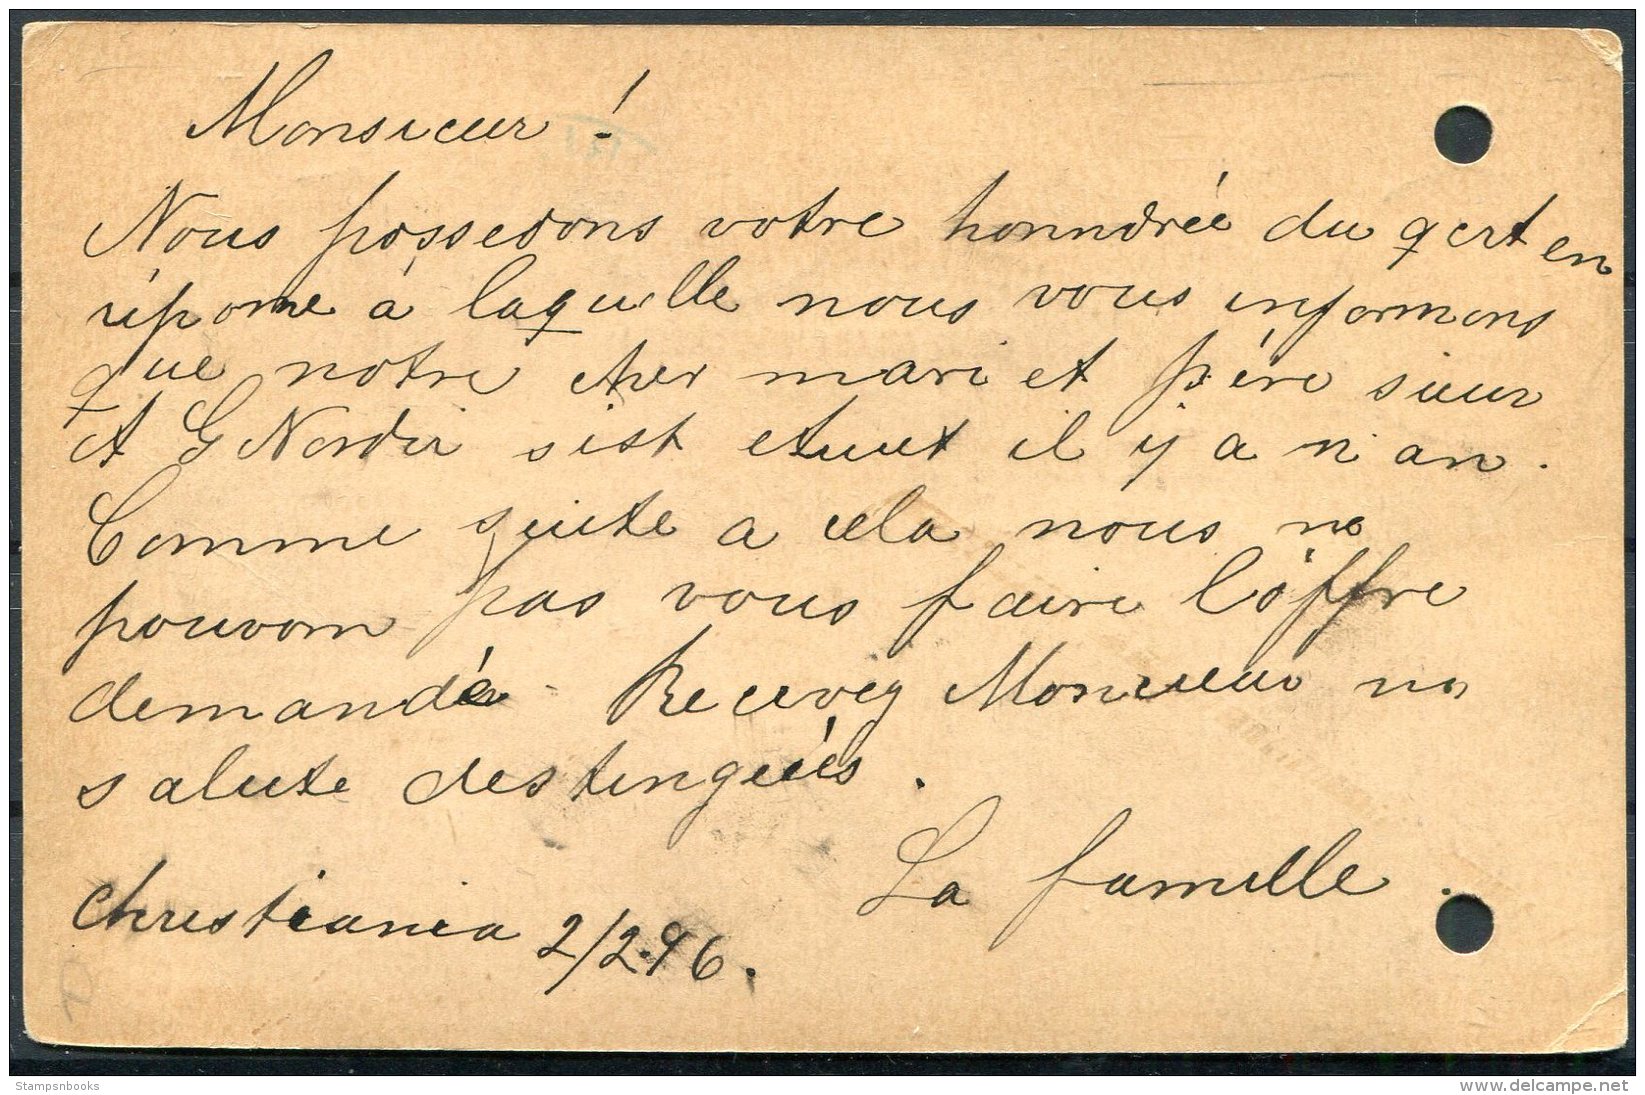 Monsieur !
Nous possedons votre honndrée du qcrt en
réponse à laquelle nous vous informons
que notre cher mari et père sieur
A G Nordir s'ist etuut il y a n' an.
Comme suite a cela nous ne
pouvom pas vous faire l'offre
demandée Recevez Monsieur nos
salute destingués.
La famille.
Christiania 2/2.96.
Stampsnbooks
www.delcampe.net